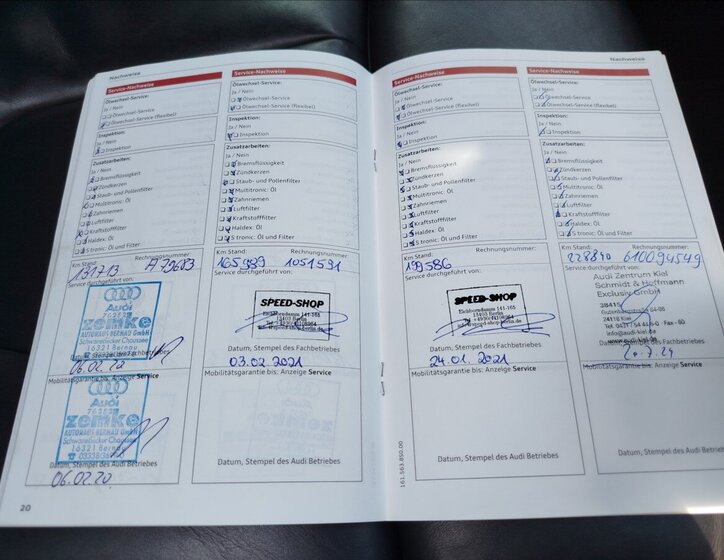 Nachweise
Service-Nachweise
Ölwechsel-Service:
Ja / Nein
Ölwechsel-Service
Ölwechsel-Service (flexibel)
Inspektion:
Ja / Nein
Inspektion
Zusatzarbeiten:
Ja / Nein
Bremsflüssigkeit
Zündkerzen
Staub- und Pollenfilter
Multitronic: Öl
Zahnriemen
Luftfilter
Kraftstofffilter
Haldex: Öl
S tronic: Öl und Filter
Km Stand: Rechnungsnummer:
131713 A79683
Service durchgeführt von:
Audi
76252
zemke
AUTOHAUS BERNAU GmbH
Schwanebecker Chaussee
16321 Bernau
Datum, Stempel des Fachbetriebes
06.02.20
Mobilitätsgarantie bis: Anzeige Service
Audi
76252
zemke
AUTOHAUS BERNAU GmbH
Schwanebecker Chaussee
16321 Bernau
Datum, Stempel des Audi Betriebes
06.02.20
20
Service-Nachweise
Ölwechsel-Service:
Ja / Nein
Ölwechsel-Service
Ölwechsel-Service (flexibel)
Inspektion:
Ja / Nein
Inspektion
Zusatzarbeiten:
Ja / Nein
Bremsflüssigkeit
Zündkerzen
Staub- und Pollenfilter
Multitronic: Öl
Zahnriemen
Luftfilter
Kraftstofffilter
Haldex: Öl
S tronic: Öl und Filter
Km Stand: Rechnungsnummer:
165989 1051591
Service durchgeführt von:
SPEED-SHOP
Eichborndamm 141-165
13403 Berlin
Datum, Stempel des Fachbetriebes
03.02.2021
Mobilitätsgarantie bis: Anzeige Service
Datum, Stempel des Audi Betriebes
Service-Nachweise
Ölwechsel-Service:
Ja / Nein
Ölwechsel-Service
Ölwechsel-Service (flexibel)
Inspektion:
Ja / Nein
Inspektion
Zusatzarbeiten:
Ja / Nein
Bremsflüssigkeit
Zündkerzen
Staub- und Pollenfilter
Multitronic: Öl
Zahnriemen
Luftfilter
Kraftstofffilter
Haldex: Öl
S tronic: Öl und Filter
Km Stand: Rechnungsnummer:
199586
Service durchgeführt von:
SPEED-SHOP
Eichborndamm 141-165
13403 Berlin
Datum, Stempel des Fachbetriebes
24.01.2021
Mobilitätsgarantie bis: Anzeige Service
Datum, Stempel des Audi Betriebes
161.563.850.00
Nachweise
Service-Nachweise
Ölwechsel-Service:
Ja / Nein
Ölwechsel-Service
Ölwechsel-Service (flexibel)
Inspektion:
Ja / Nein
Inspektion
Zusatzarbeiten:
Ja / Nein
Bremsflüssigkeit
Zündkerzen
Staub- und Pollenfilter
Multitronic: Öl
Zahnriemen
Luftfilter
Kraftstofffilter
Haldex: Öl
S tronic: Öl und Filter
Km Stand: Rechnungsnummer:
228840 610094549
Service durchgeführt von:
Audi Zentrum Kiel
Schmidt & Hoffmann
Exclusiv GmbH
38415
24118 Kiel
info@audi-kiel.de
www.audi-kiel.de
Datum, Stempel des Fachbetriebes
Mobilitätsgarantie bis: Anzeige Service
Datum, Stempel des Audi Betriebes